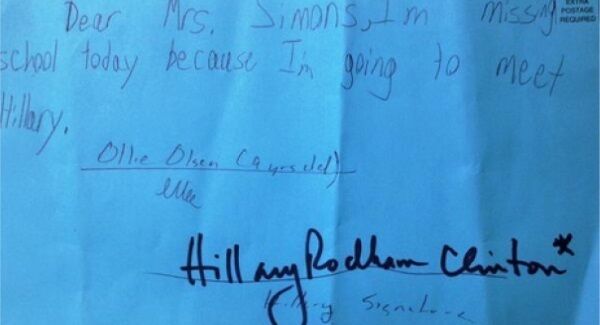 EXTRA
POSTAGE
REQUIRED
Dear Mrs. Simons, Im missing
school today because I'm going to meet
Hillary.
Ollie Olsen (9 yrs old)
Hillary Rodham Clinton*
Hillary Signature